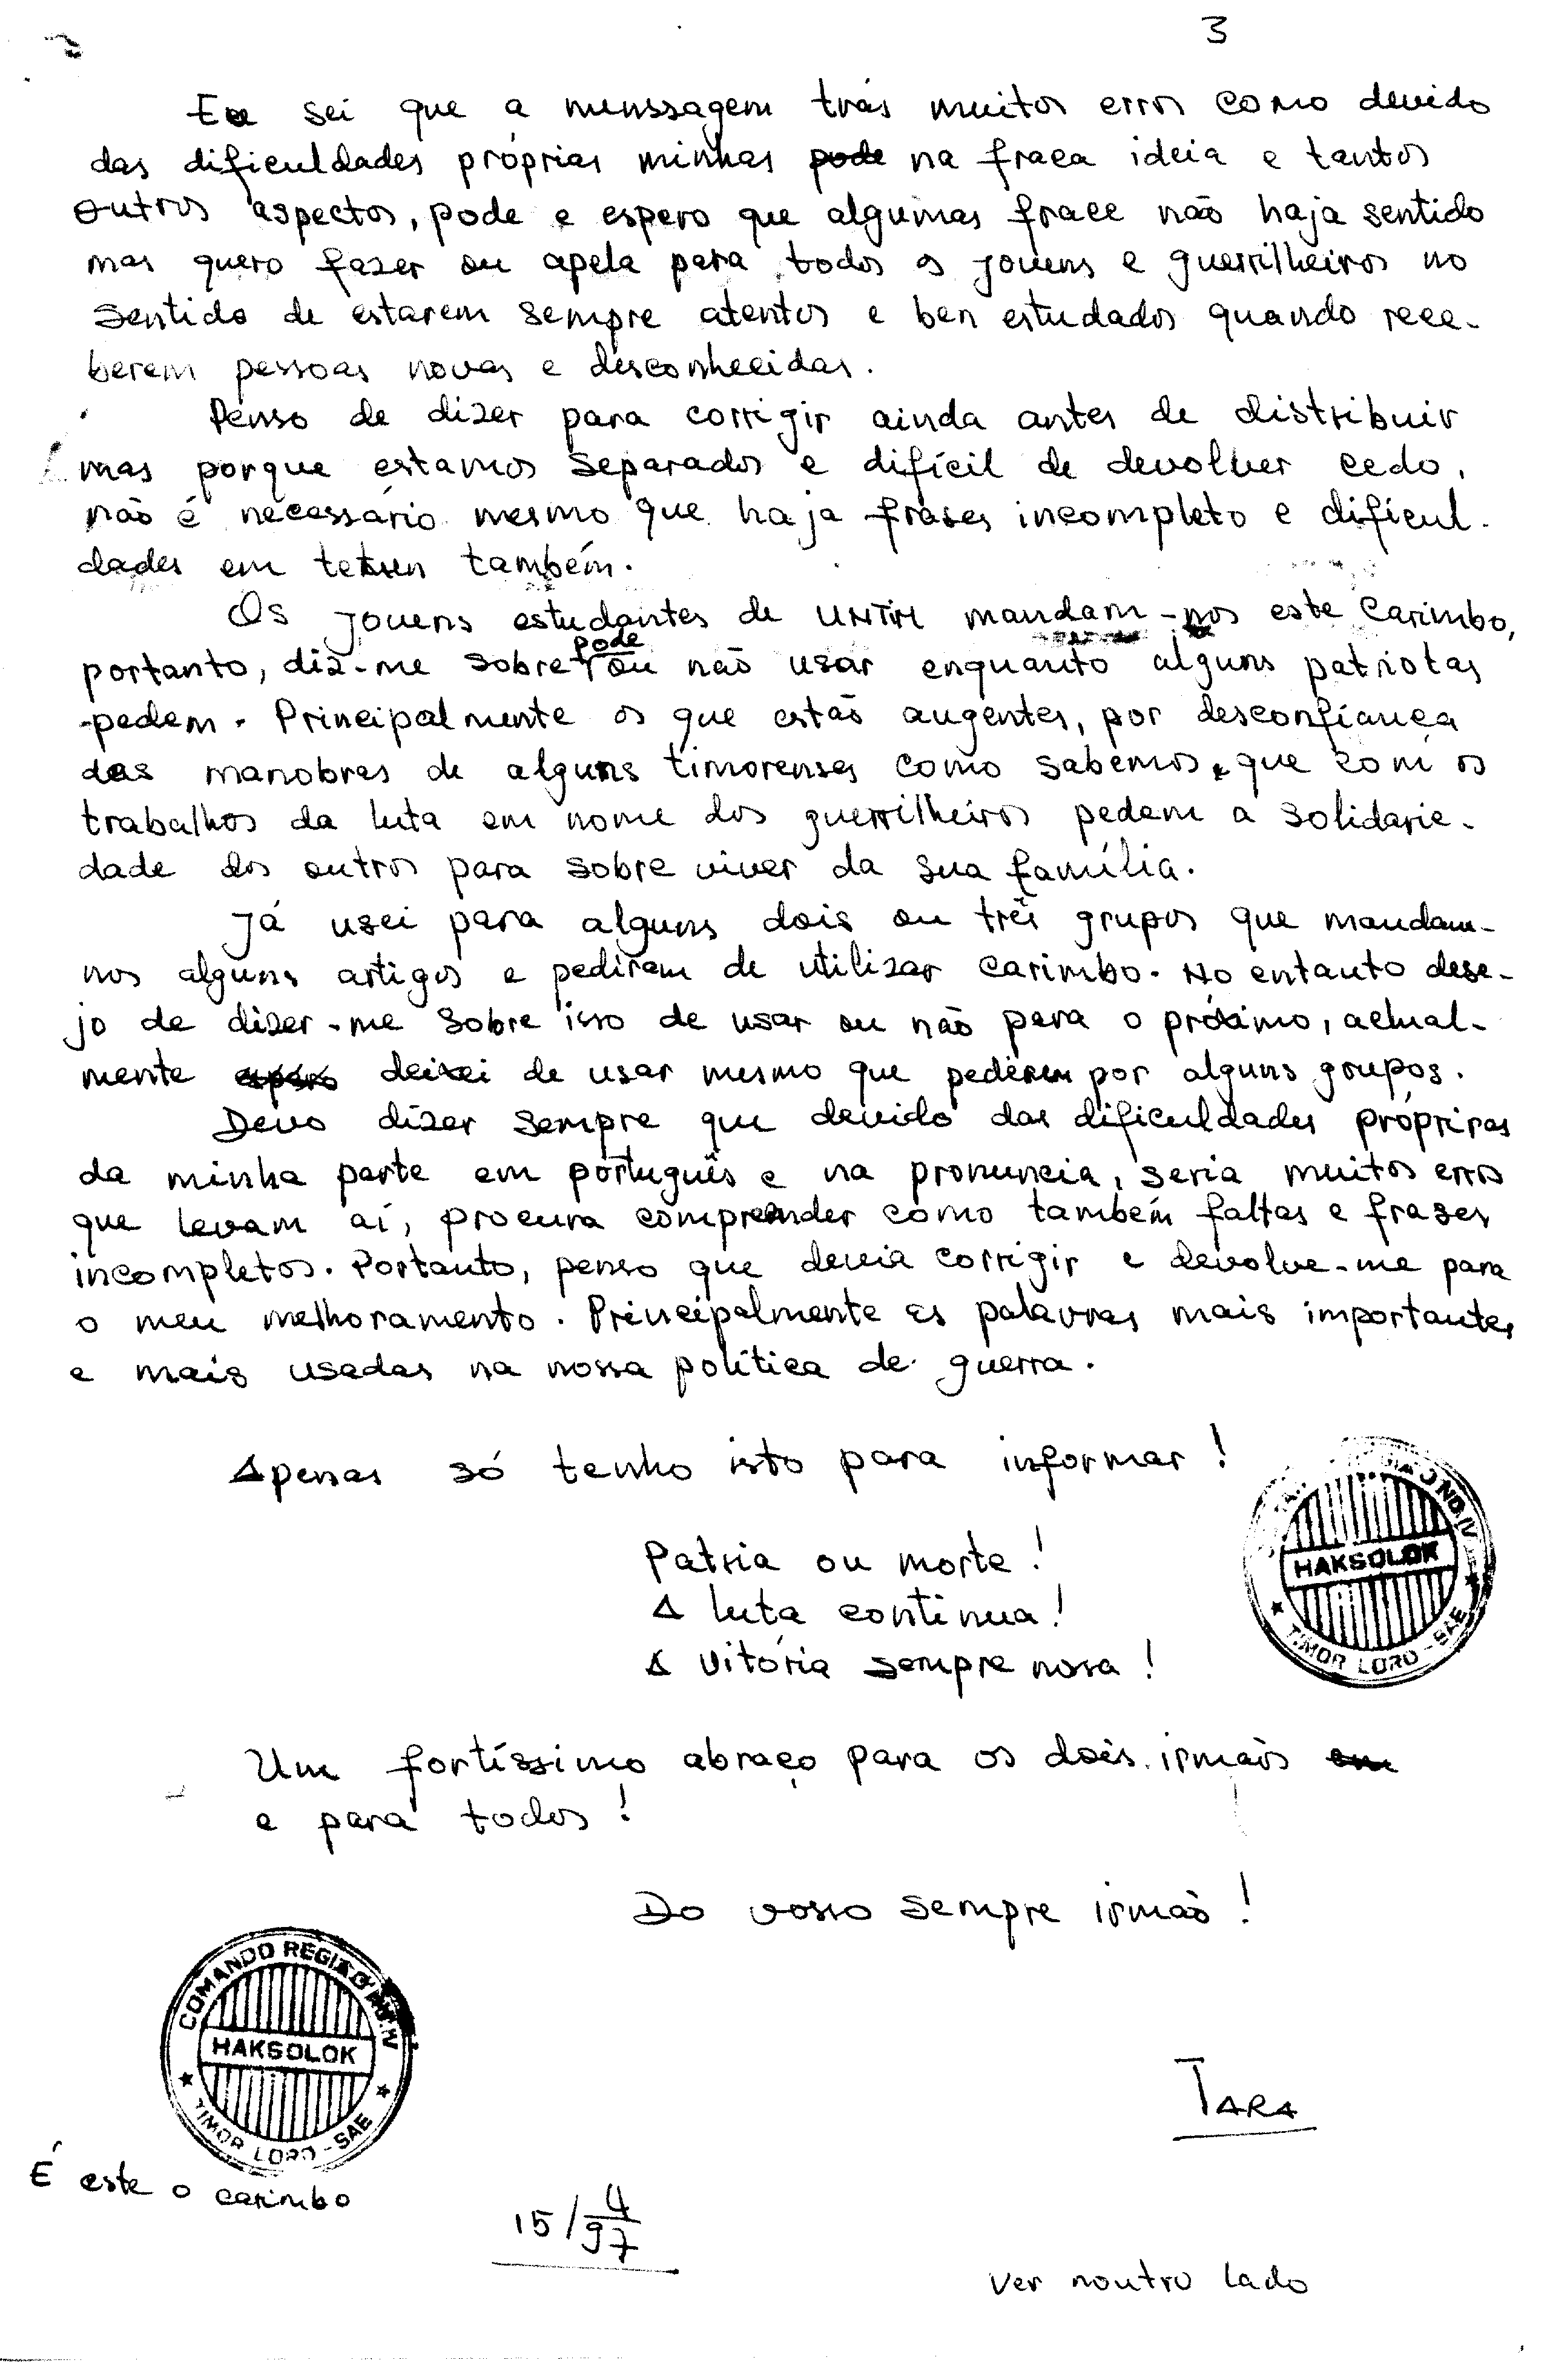 3
Eu sei que a menssagem trás muitos erros como devido
das dificuldades próprias minhas pode na fraca ideia e tantos
outros aspectos, pode e espero que algumas frace não haja sentido
mas quero fazer ou apela para todos os jovens e guerrilheiros no
sentido de estarem sempre atentos e ben estudados quando rece-
berem pessoas novas e desconhecidas.
Penso de dizer para corrigir ainda antes de distribuir
mas porque estamos separados e difícil de devolver cedo,
não é necessário mesmo que haja frases incompleto e dificul-
dades em tetun também.
Os jovens estudantes de UNTIM mandam-nos este carimbo,
portanto, diz-me sobre pode ou não usar enquanto alguns patriotas
pedem. Principalmente os que estão augentes, por desconfiança
das manobras de alguns timorenses como sabemos, que com os
trabalhos da luta em nome dos guerrilheiros pedem a solidarie-
dade dos outros para sobre viver da sua família.
Já usei para alguns dois ou três grupos que mandam-
nos alguns artigos e pediram de utilizar carimbo. No entanto dese-
jo de dizer-me sobre isso de usar ou não para o próximo, actual-
mente deixei de usar mesmo que pederem por alguns groupos.
Devo dizer sempre que devido das dificuldades própriras
da minha parte em português e na pronuncia, seria muitos erros
que levam aí, procura comprender como também faltas e frases
incompletos. Portanto, penso que devia corrigir e devolve-me para
o meu melhoramento. Principalmente as palavras mais importantes
e mais usadas na nossa política de guerra.
Apenas só tenho isto para informar!
HAKSOLOK
TIMOR LORO-SAE
Patria ou morte!
A luta continua!
A vitória sempre nossa!
Um fortíssimo abraço para os dois irmãos em
e para todos!
Do vosso sempre irmão!
COMANDO REGIÃO NO.IV
HAKSOLOK
TIMOR LORO-SAE
TARA
É este o carimbo
15/4/97
Ver noutro lado